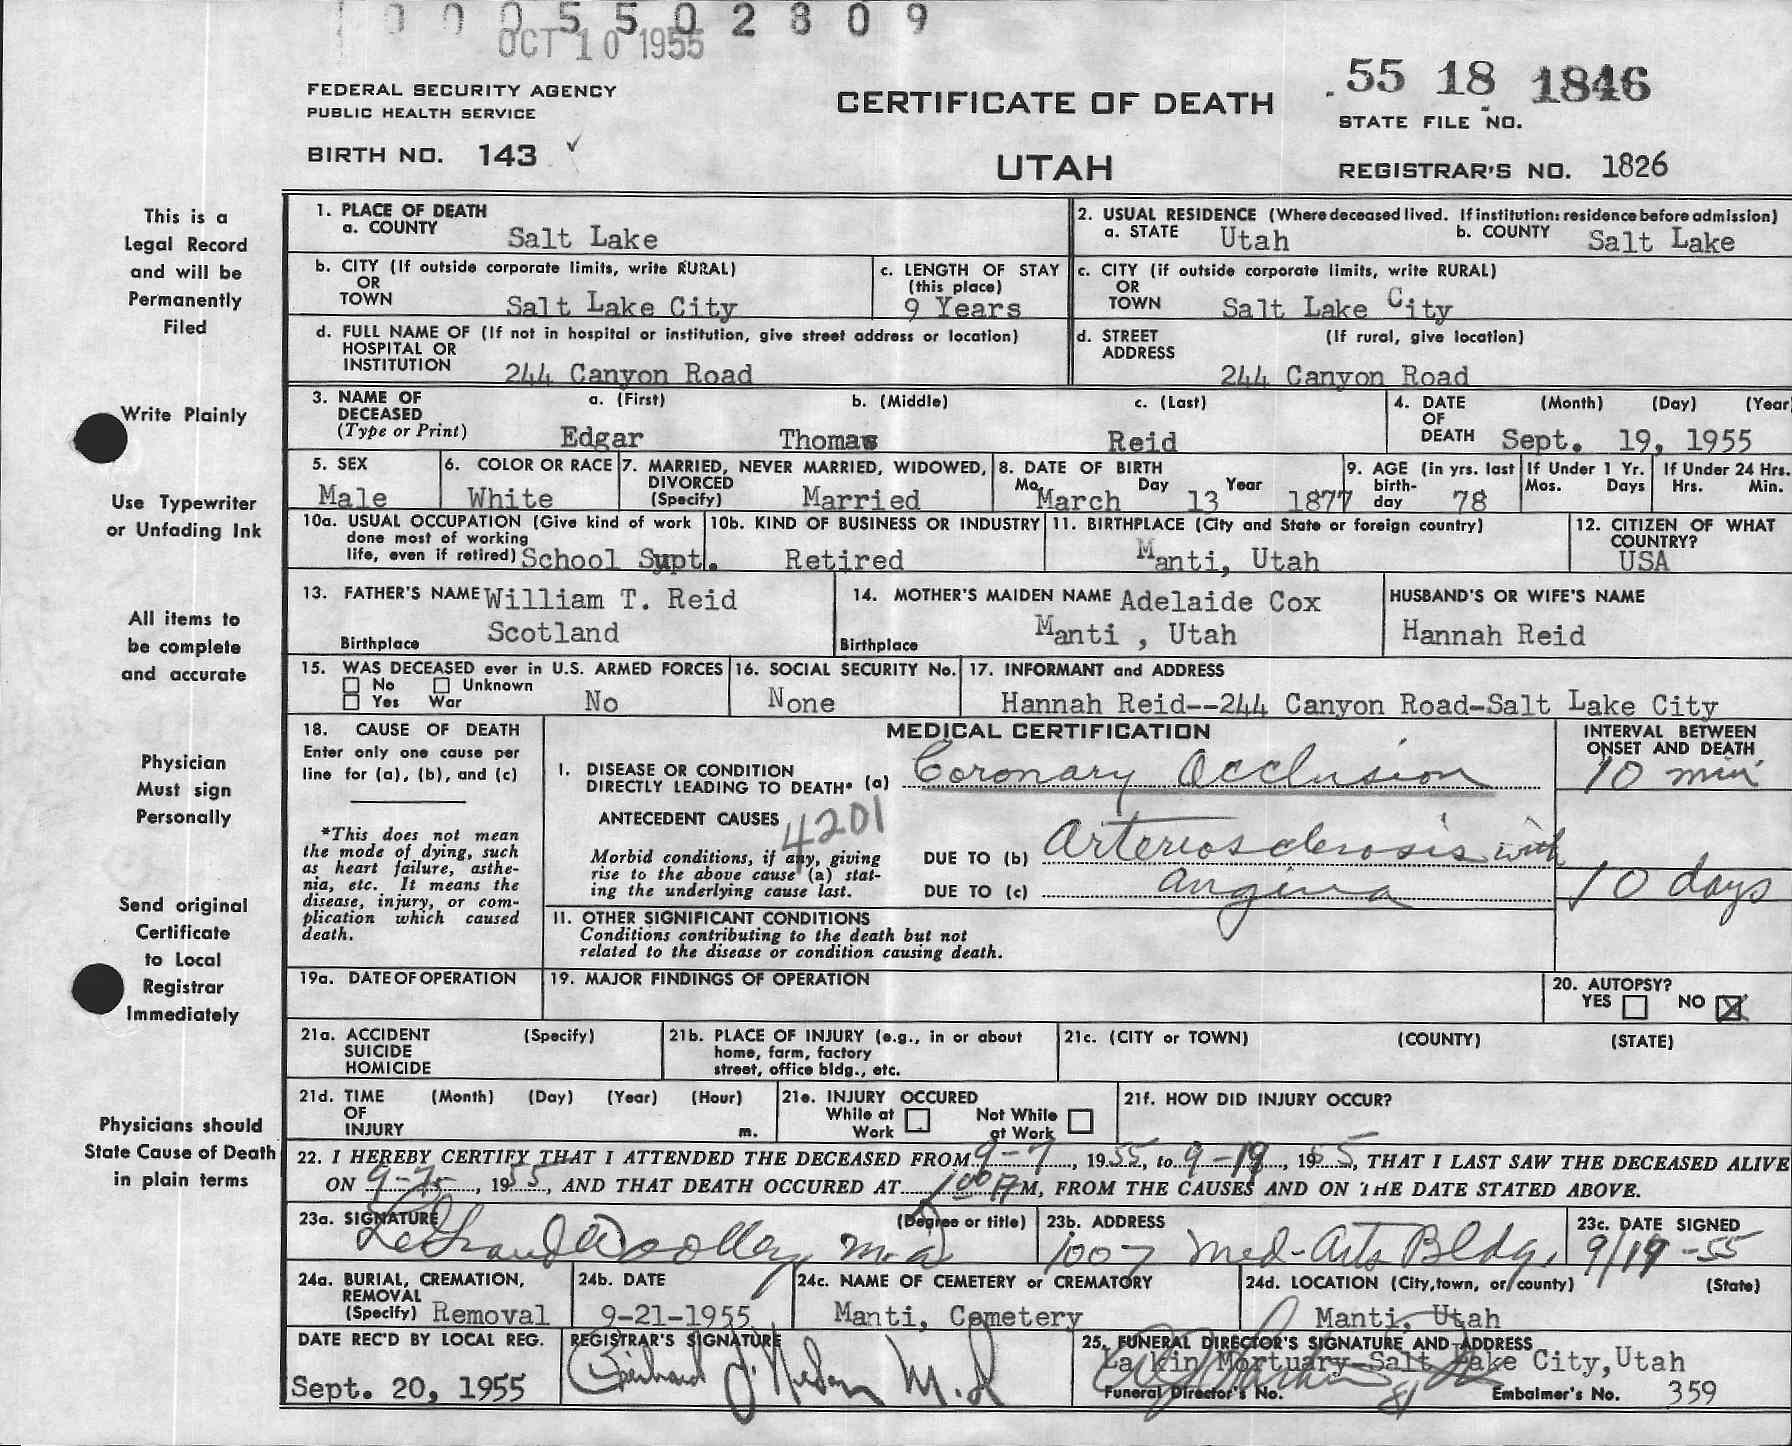 0 0 0 5 5 0 2 8 0 9
OCT 10 1955
FEDERAL SECURITY AGENCY
PUBLIC HEALTH SERVICE
BIRTH NO. 143 ✓
CERTIFICATE OF DEATH
UTAH
55 18 1846
STATE FILE NO.
REGISTRAR'S NO. 1826
This is a
Legal Record
and will be
Permanently
Filed
Write Plainly
Use Typewriter
or Unfading Ink
All items to
be complete
and accurate
Physician
Must sign
Personally
Send original
Certificate
to Local
Registrar
Immediately
Physicians should
State Cause of Death
in plain terms
1. PLACE OF DEATH
a. COUNTY Salt Lake
2. USUAL RESIDENCE (Where deceased lived. If institution: residence before admission)
a. STATE Utah b. COUNTY Salt Lake
b. CITY (If outside corporate limits, write RURAL)
OR
TOWN Salt Lake City
c. LENGTH OF STAY
(this place)
9 Years
c. CITY (if outside corporate limits, write RURAL)
OR
TOWN Salt Lake City
d. FULL NAME OF (If not in hospital or institution, give street address or location)
HOSPITAL OR
INSTITUTION 244 Canyon Road
d. STREET (If rural, give location)
ADDRESS
244 Canyon Road
3. NAME OF a. (First) b. (Middle) c. (Last)
DECEASED
(Type or Print) Edgar Thomas Reid
4. DATE (Month) (Day) (Year
OF
DEATH Sept. 19, 1955
5. SEX
Male
6. COLOR OR RACE
White
7. MARRIED, NEVER MARRIED, WIDOWED,
DIVORCED
(Specify) Married
8. DATE OF BIRTH
Mo. Day Year
March 13 1877
9. AGE (in yrs. last
birth-
day 78
If Under 1 Yr.
Mos. Days
If Under 24 Hrs.
Hrs. Min.
10a. USUAL OCCUPATION (Give kind of work
done most of working
life, even if retired) School Supt.
10b. KIND OF BUSINESS OR INDUSTRY
Retired
11. BIRTHPLACE (City and State or foreign country)
Manti, Utah
12. CITIZEN OF WHAT
COUNTRY?
USA
13. FATHER'S NAME William T. Reid
Birthplace Scotland
14. MOTHER'S MAIDEN NAME Adelaide Cox
Birthplace Manti , Utah
HUSBAND'S OR WIFE'S NAME
Hannah Reid
15. WAS DECEASED ever in U.S. ARMED FORCES
No Unknown
Yes War No
16. SOCIAL SECURITY No.
None
17. INFORMANT and ADDRESS
Hannah Reid--244 Canyon Road-Salt Lake City
18. CAUSE OF DEATH
Enter only one cause per
line for (a), (b), and (c)
*This does not mean
the mode of dying, such
as heart failure, asthe-
nia, etc. It means the
disease, injury, or com-
plication which caused
death.
MEDICAL CERTIFICATION
INTERVAL BETWEEN
ONSET AND DEATH
I. DISEASE OR CONDITION
DIRECTLY LEADING TO DEATH* (a) Coronary Occlusion 10 min
ANTECEDENT CAUSES 4201
Morbid conditions, if any, giving
rise to the above cause (a) stat-
ing the underlying cause last.
DUE TO (b) Arteriosclerosis with
DUE TO (c) angina 10 days
II. OTHER SIGNIFICANT CONDITIONS
Conditions contributing to the death but not
related to the disease or condition causing death.
19a. DATE OF OPERATION
19. MAJOR FINDINGS OF OPERATION
20. AUTOPSY?
YES NO X
21a. ACCIDENT (Specify)
SUICIDE
HOMICIDE
21b. PLACE OF INJURY (e.g., in or about
home, farm, factory
street, office bldg., etc.
21c. (CITY or TOWN) (COUNTY) (STATE)
21d. TIME (Month) (Day) (Year) (Hour)
OF
INJURY m.
21e. INJURY OCCURED
While at Not While
Work at Work
21f. HOW DID INJURY OCCUR?
22. I HEREBY CERTIFY THAT I ATTENDED THE DECEASED FROM 9-7, 1955, to 9-19, 1955, THAT I LAST SAW THE DECEASED ALIVE
ON 9-7, 1955, AND THAT DEATH OCCURED AT 100 P.M, FROM THE CAUSES AND ON THE DATE STATED ABOVE.
23a. SIGNATURE (Degree or title)
Woolley M.D
23b. ADDRESS
1007 Med-Arts Bldg.
23c. DATE SIGNED
9/19-55
24a. BURIAL, CREMATION,
REMOVAL
(Specify) Removal
24b. DATE
9-21-1955
24c. NAME OF CEMETERY or CREMATORY
Manti, Cemetery
24d. LOCATION (City, town, or county) (State)
Manti, Utah
DATE REC'D BY LOCAL REG.
Sept. 20, 1955
REGISTRAR'S SIGNATURE
M.D
25. FUNERAL DIRECTOR'S SIGNATURE AND ADDRESS
Larkin Mortuary-Salt Lake City, Utah
Funeral Director's No. 81 Embalmer's No. 359